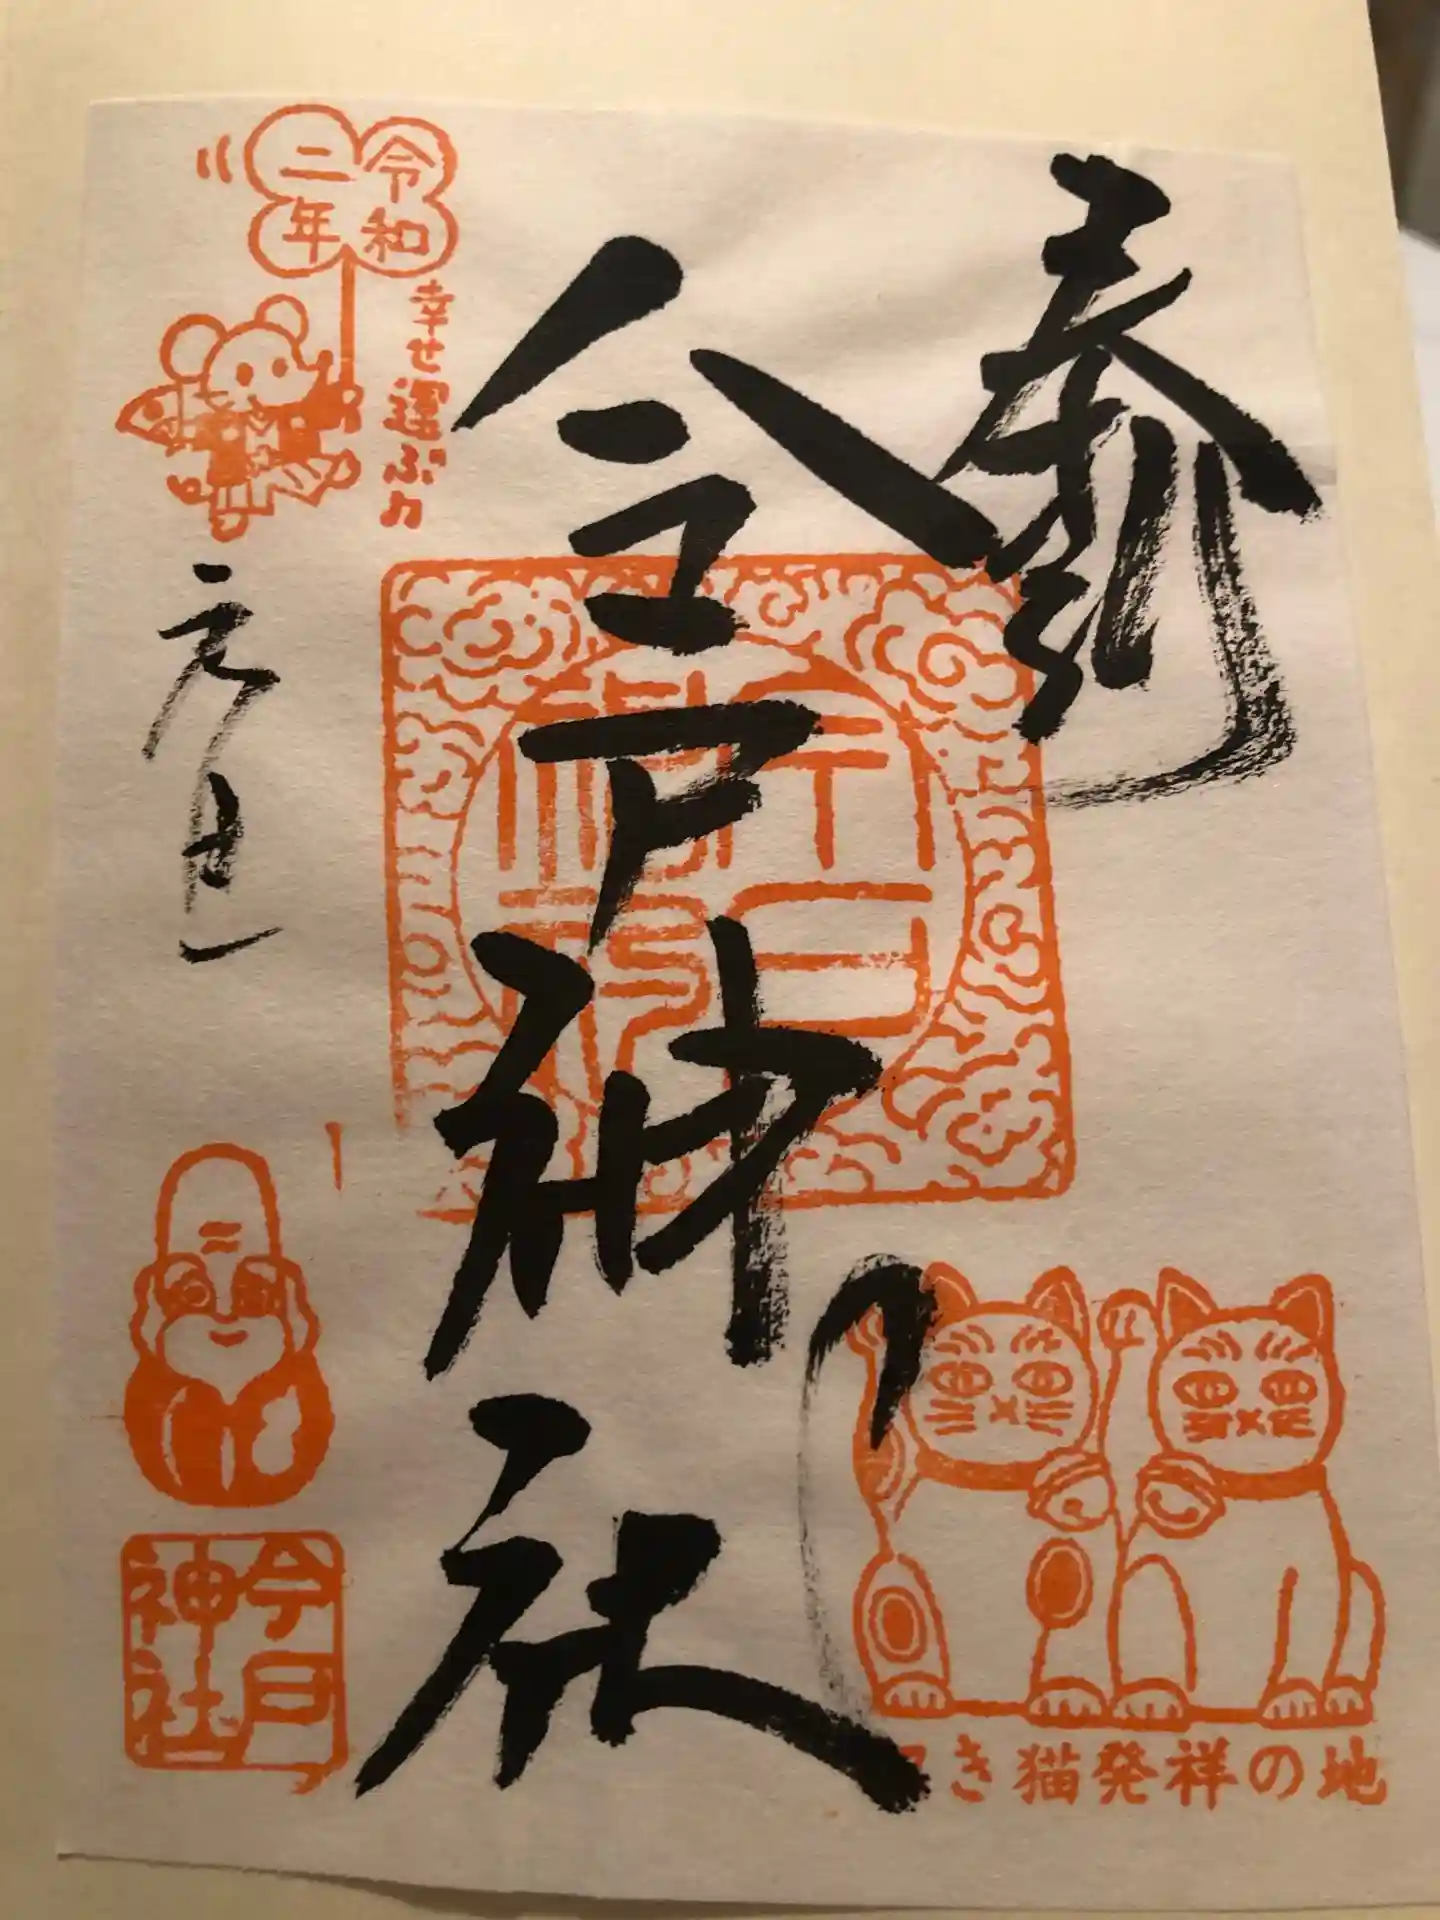 奉拝
今戸神社
令和
二年
幸せ運ぶ
元旦
今戸
神社
き猫発祥の地